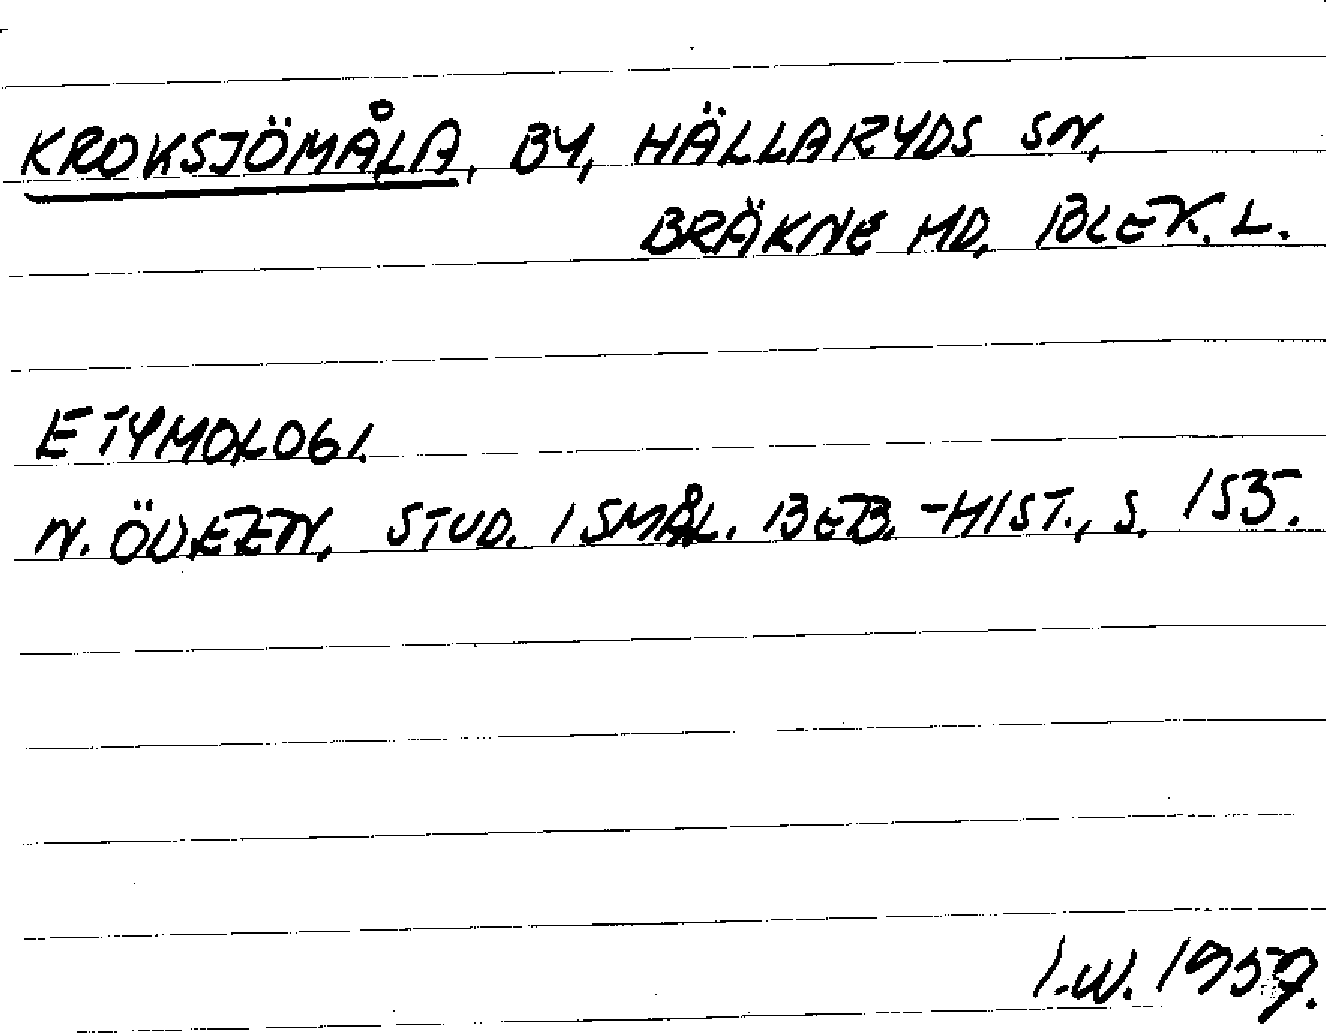 KROKSJÖMÅLA, BY, HÄLLARYDS SN,
BRÄKNE HD, BLEK. L.
ETYMOLOGI.
N. ÖDEEN, STUD. I SMÅL. BEB.-HIST., S. 153.
I.W. 1959.